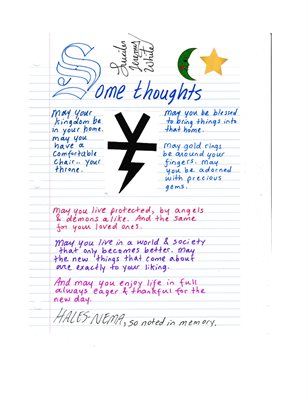 Lucifer
Jeremy
White
Some thoughts
May your
kingdom be
in your home.
may you
have a
comfortable
chair.. your
throne.
May you be blessed
to bring things into
that home.
May gold rings
be around your
fingers. may
you be adorned
with precious
gems.
May you live protected, by angels
& demons alike. And the same
for your loved ones.
May you live in a world & society
that only becomes better. May
the new things that come about
are exactly to your liking.
And may you enjoy life in full
always eager & thankful for the
new day.
HALES-NEMA, so noted in memory.